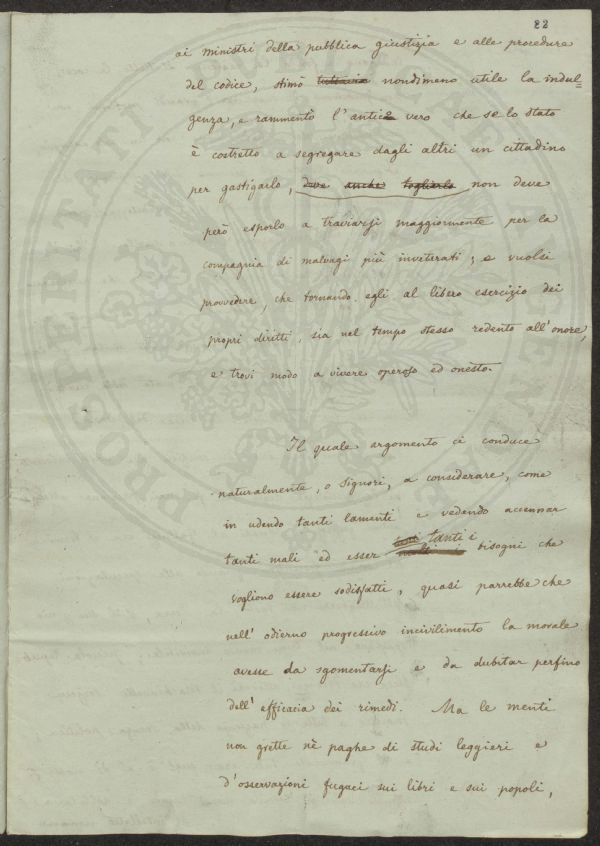 82
ai ministri della pubblica giustizia e alle procedure
del codice, stimò tuttavia nondimeno utile la indul=
genza, e rammentò l'antico vero che se lo Stato
è costretto a segregare dagli altri un cittadino
per gastigarlo, deve anche toglierlo non deve
però esporlo a traviarsi maggiormente per la
compagnia di malvagi più inveterati; e vuolsi
provvedere, che tornando egli al libero esercizio dei
propri diritti, sia nel tempo stesso redento all'onore,
e trovi modo a vivere operoso ed onesto.
Il quale argomento ci conduce
naturalmente, o Signori, a considerare, come
in udendo tanti lamenti e vedendo accennar
tanti i
tanti mali ed esser molti i bisogni che
vogliono essere sodisfatti, quasi parrebbe che
nell'odierno progressivo incivilimento la morale
avesse da sgomentarsi e da dubitar perfino
dell'efficacia dei rimedi. Ma le menti
non grette nè paghe di studi leggieri e
d'osservazioni fugaci sui libri e sui popoli,
PROSPERITATI